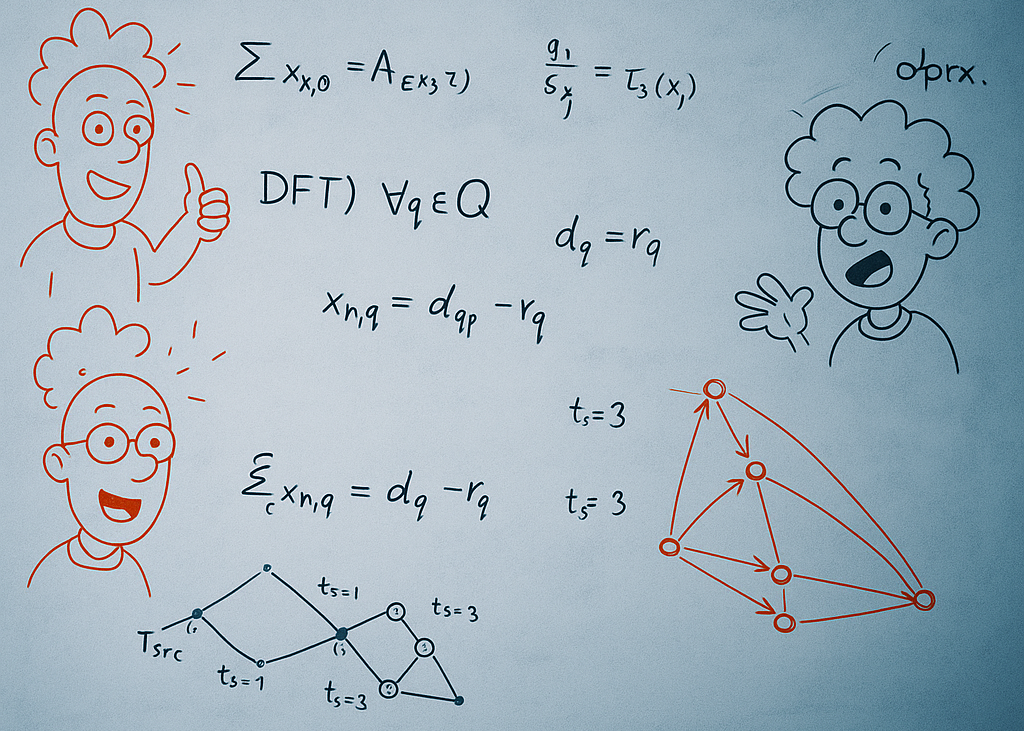 ∑ x_{x,0} = A_{εx₃ τ)}
g₁/s_{x_j} = τ₃(x_j)
dprx.
DFT) ∀q ∈ Q
d_q = r_q
x_{n,q} = d_{qp} − r_q
t_s = 3
t_s = 3
∑_c x_{n,q} = d_q − r_q
t_s = 1
t_s = 3
T_{src}
t_s = 1
t_s = 3